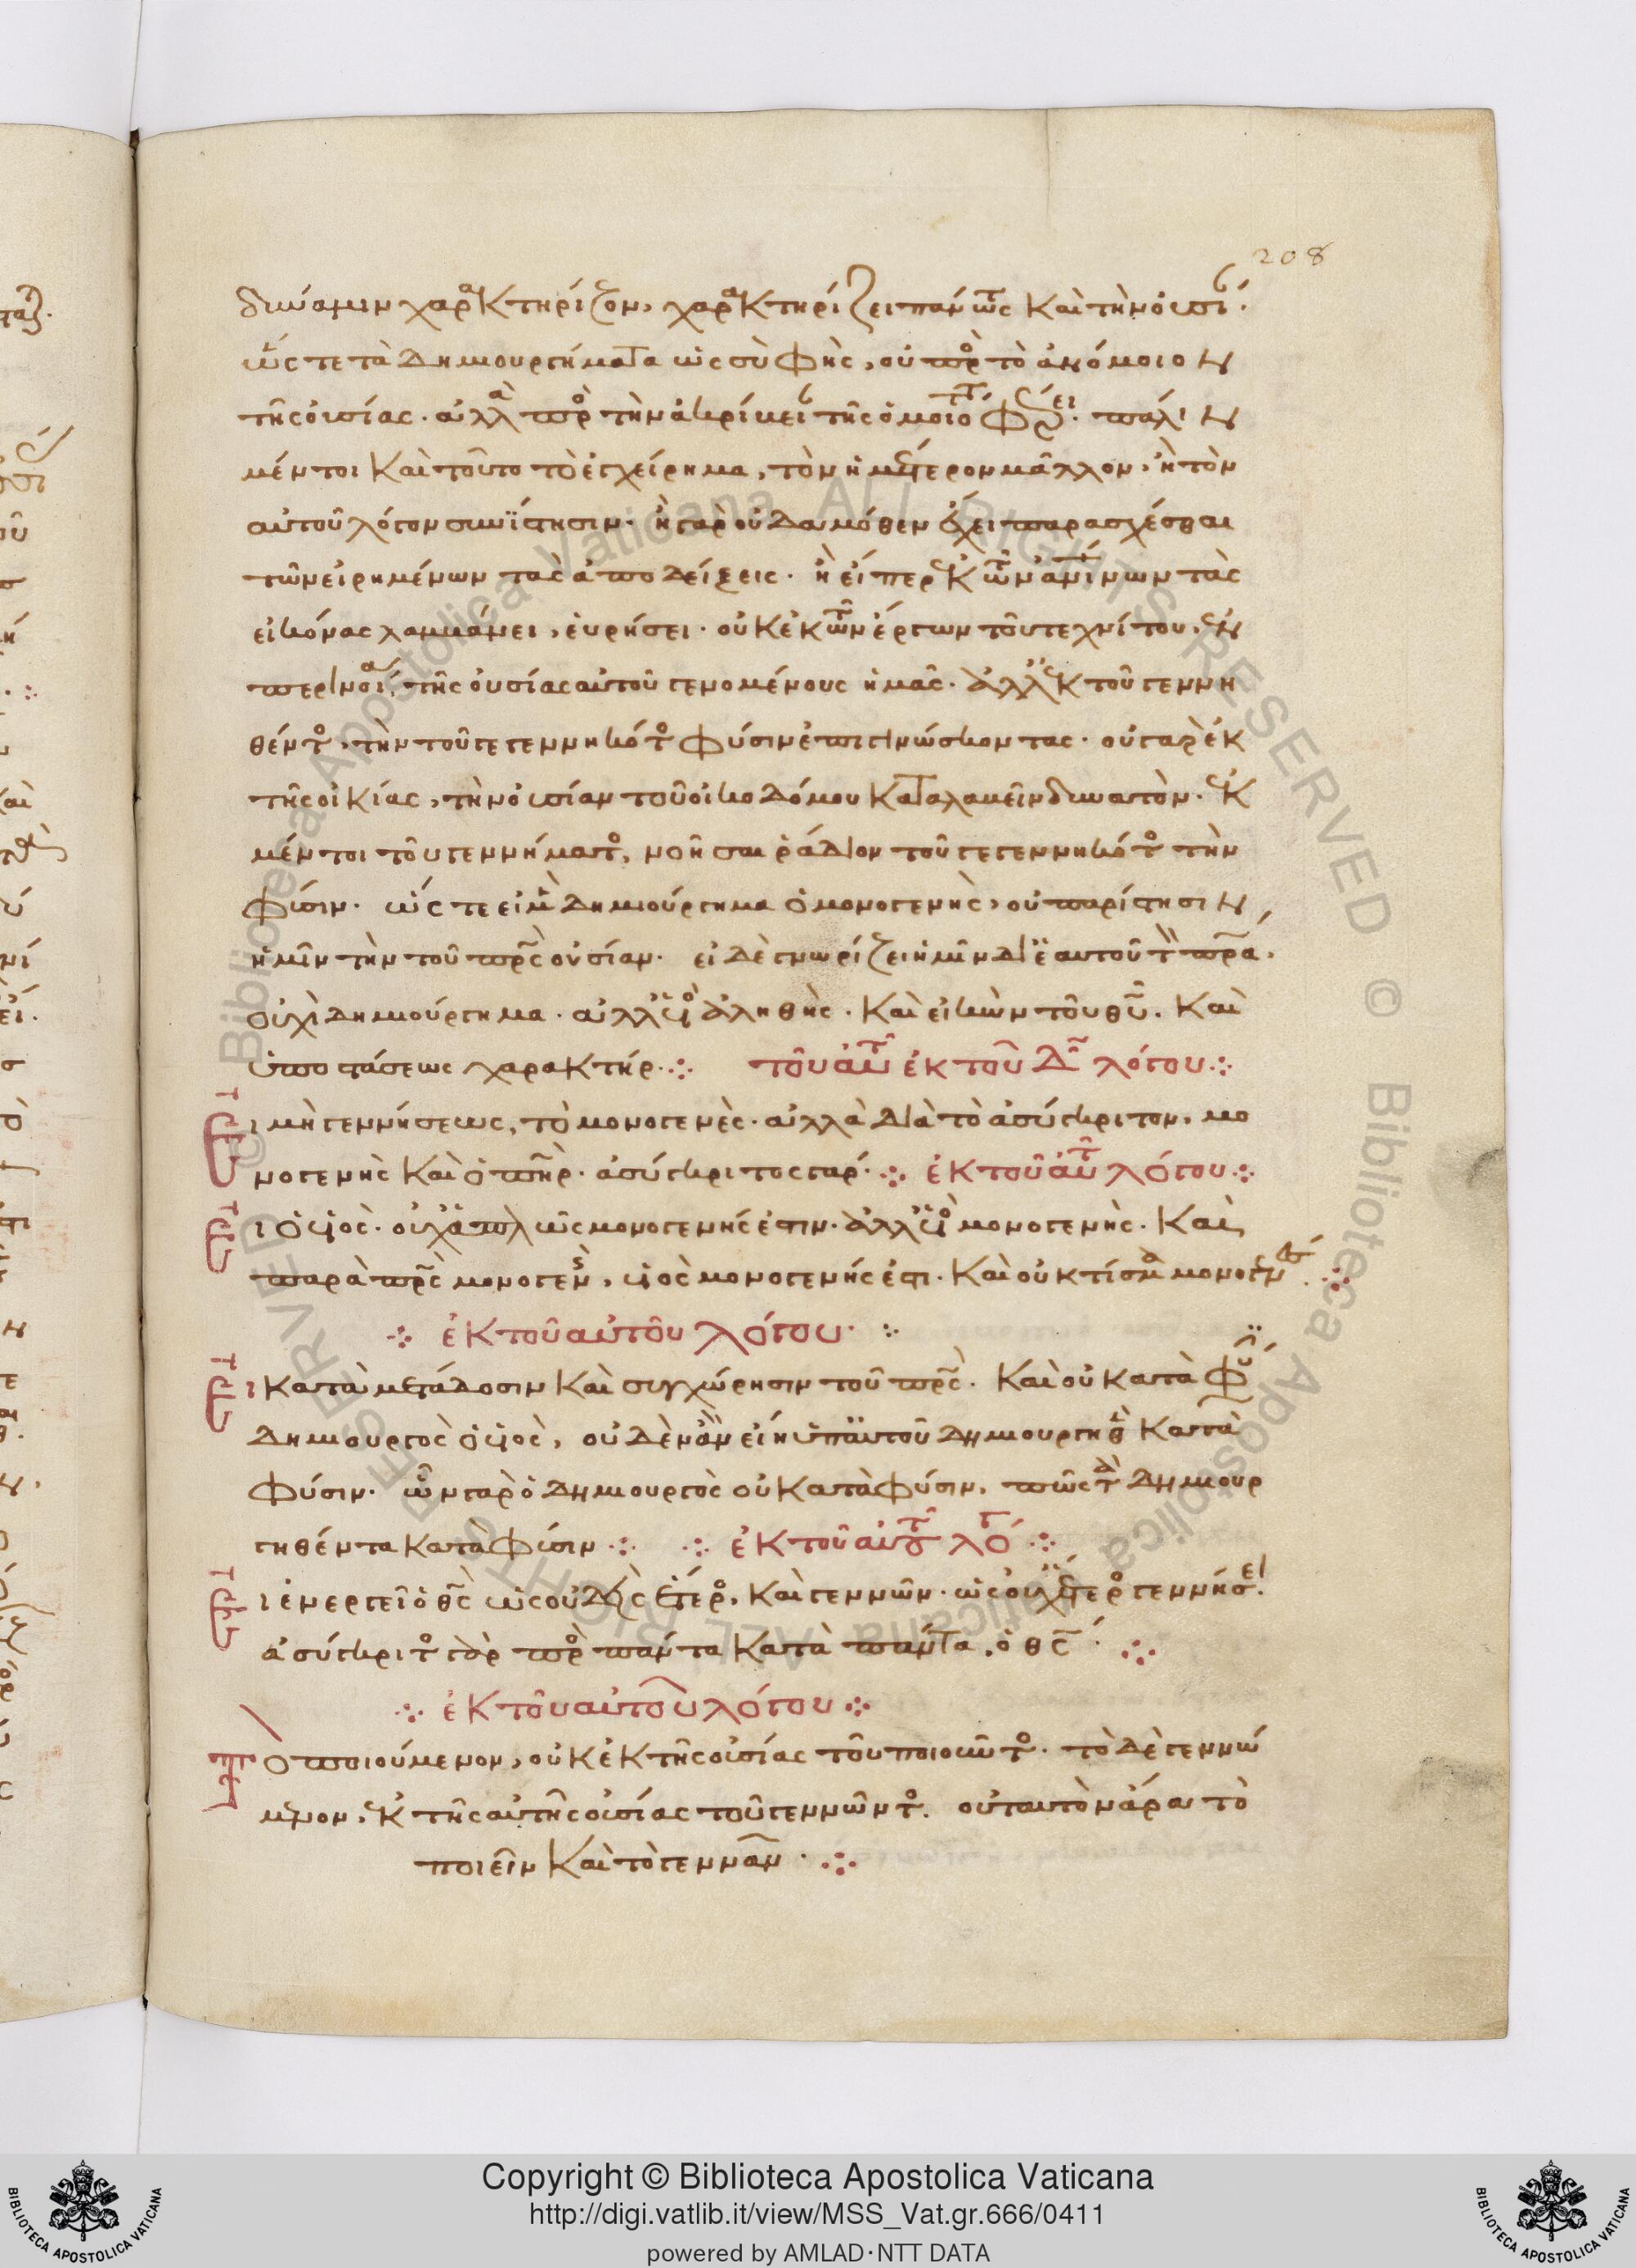 208
δύναμιν χαρακτηρίζον, χαρακτηρίζει πάντως καὶ τὴν οὐσίαν·
ὥς τε τὰ δημιουργήματα ὡς σὺ φῂς, οὐ πρὸς τὸ ἀνόμοιον
τῆς οὐσίας· ἀλλὰ πρὸς τὴν ἀκρίβειαν τῆς ὁμοιότητος φέρει· πάλιν
μέντοι καὶ τοῦτο τὸ ἐγχείρημα, τὸν ἡμέτερον μᾶλλον, ἢ τὸν
αὐτοῦ λόγον συνΐστησιν· ἢ γὰρ οὐδαμόθεν ἔχει παρασχέσθαι
τῶν εἰρημένων τὰς ἀποδείξεις· ἢ εἴπερ ἐκ τῶν ἀνθρωπίνων τὰς
εἰκόνας λαμβάνει, εὑρήσει· οὐκ ἐκ τῶν ἔργων τοῦ τεχνίτου, ἐν
περινοίᾳ τῆς οὐσίας αὐτοῦ γενομένους ἡμᾶς· ἀλλ' ἐκ τοῦ γεννη
θέντος, τὴν τοῦ γεγεννηκότος φύσιν ἐπιγινώσκοντας· οὐ γὰρ ἐκ
τῆς οἰκίας, τὴν οὐσίαν τοῦ οἰκοδόμου καταλαβεῖν δυνατὸν· ἐκ
μέντοι τοῦ γεννήματος, νοῆσαι ῥάδιον τοῦ γεγεννηκότος τὴν
φύσιν· ὥς τε εἰ μὲν δημιούργημα ὁ μονογενὴς, οὐ παρίστησιν
ἡμῖν τὴν τοῦ πρς οὐσίαν· εἰ δὲ γνωρίζει ἡμῖν δι' ἑαυτοῦ τὸν πρα,
οὐχὶ δημιούργημα· ἀλλ' υἱὸς ἀληθὴς· καὶ εἰκὼν τοῦ θυ· καὶ
ὑποστάσεως χαρακτήρ ⁘ τοῦ αὐτοῦ ἐκ τοῦ Δ λόγου ⁘
Εἰ μὴ γεννήσεως, τὸ μονογενὲς· ἀλλὰ διὰ τὸ ἀσύγκριτον, μο
νογενὴς καὶ ὁ πηρ· ἀσύγκριτος γάρ· ⁘ ἐκ τοῦ αὐτοῦ λόγου ⁘
Εἰ ὁ υἱὸς· οὐχ ἁπλῶς μονογενής ἐστιν· ἀλλ' υἱὸς μονογενὴς· καὶ
παρὰ πρς μονογενοῦς, υἱὸς μονογενής ἐστι· καὶ οὐ κτίσμα μονογενές ⁘
⁘ ἐκ τοῦ αὐτοῦ λόγου· ⁘
Εἰ κατὰ μετάδοσιν καὶ συγχώρησιν τοῦ πρς· καὶ οὐ κατὰ φύσιν
δημιουργὸς ὁ υἱὸς, οὐδὲν ἂν εἴη ὑπ' αὐτοῦ δημιουργηθὲν κατὰ
φύσιν· ὧν γὰρ ὁ δημιουργὸς οὐ κατὰ φύσιν, πῶς τὰ δημιουρ
γηθέντα κατὰ φύσιν ⁘ ⁘ ἐκ τοῦ αὐτοῦ λόγου ⁘
Εἰ ἐνεργεῖ ὁ θς ὡς οὐδεὶς ἕτερος, καὶ γεννῶν· ὡς οὐχ ἕτερος γεννήσει·
ἀσύγκριτος γὰρ πρὸς πάντα κατὰ πάντα, ὁ θς· ⁘
⁘ ἐκ τοῦ αὐτοῦ λόγου ⁘
Τὸ ποιούμενον, οὐκ ἐκ τῆς οὐσίας τοῦ ποιοῦντος· τὸ δὲ γεννώ
μενον, ἐκ τῆς αὐτῆς οὐσίας τοῦ γεννῶντος· οὐ ταυτὸν ἄρα τὸ
ποιεῖν καὶ τὸ γεννᾶν· ⁘
Copyright © Biblioteca Apostolica Vaticana
http://digi.vatlib.it/view/MSS_Vat.gr.666/0411
powered by AMLAD·NTT DATA